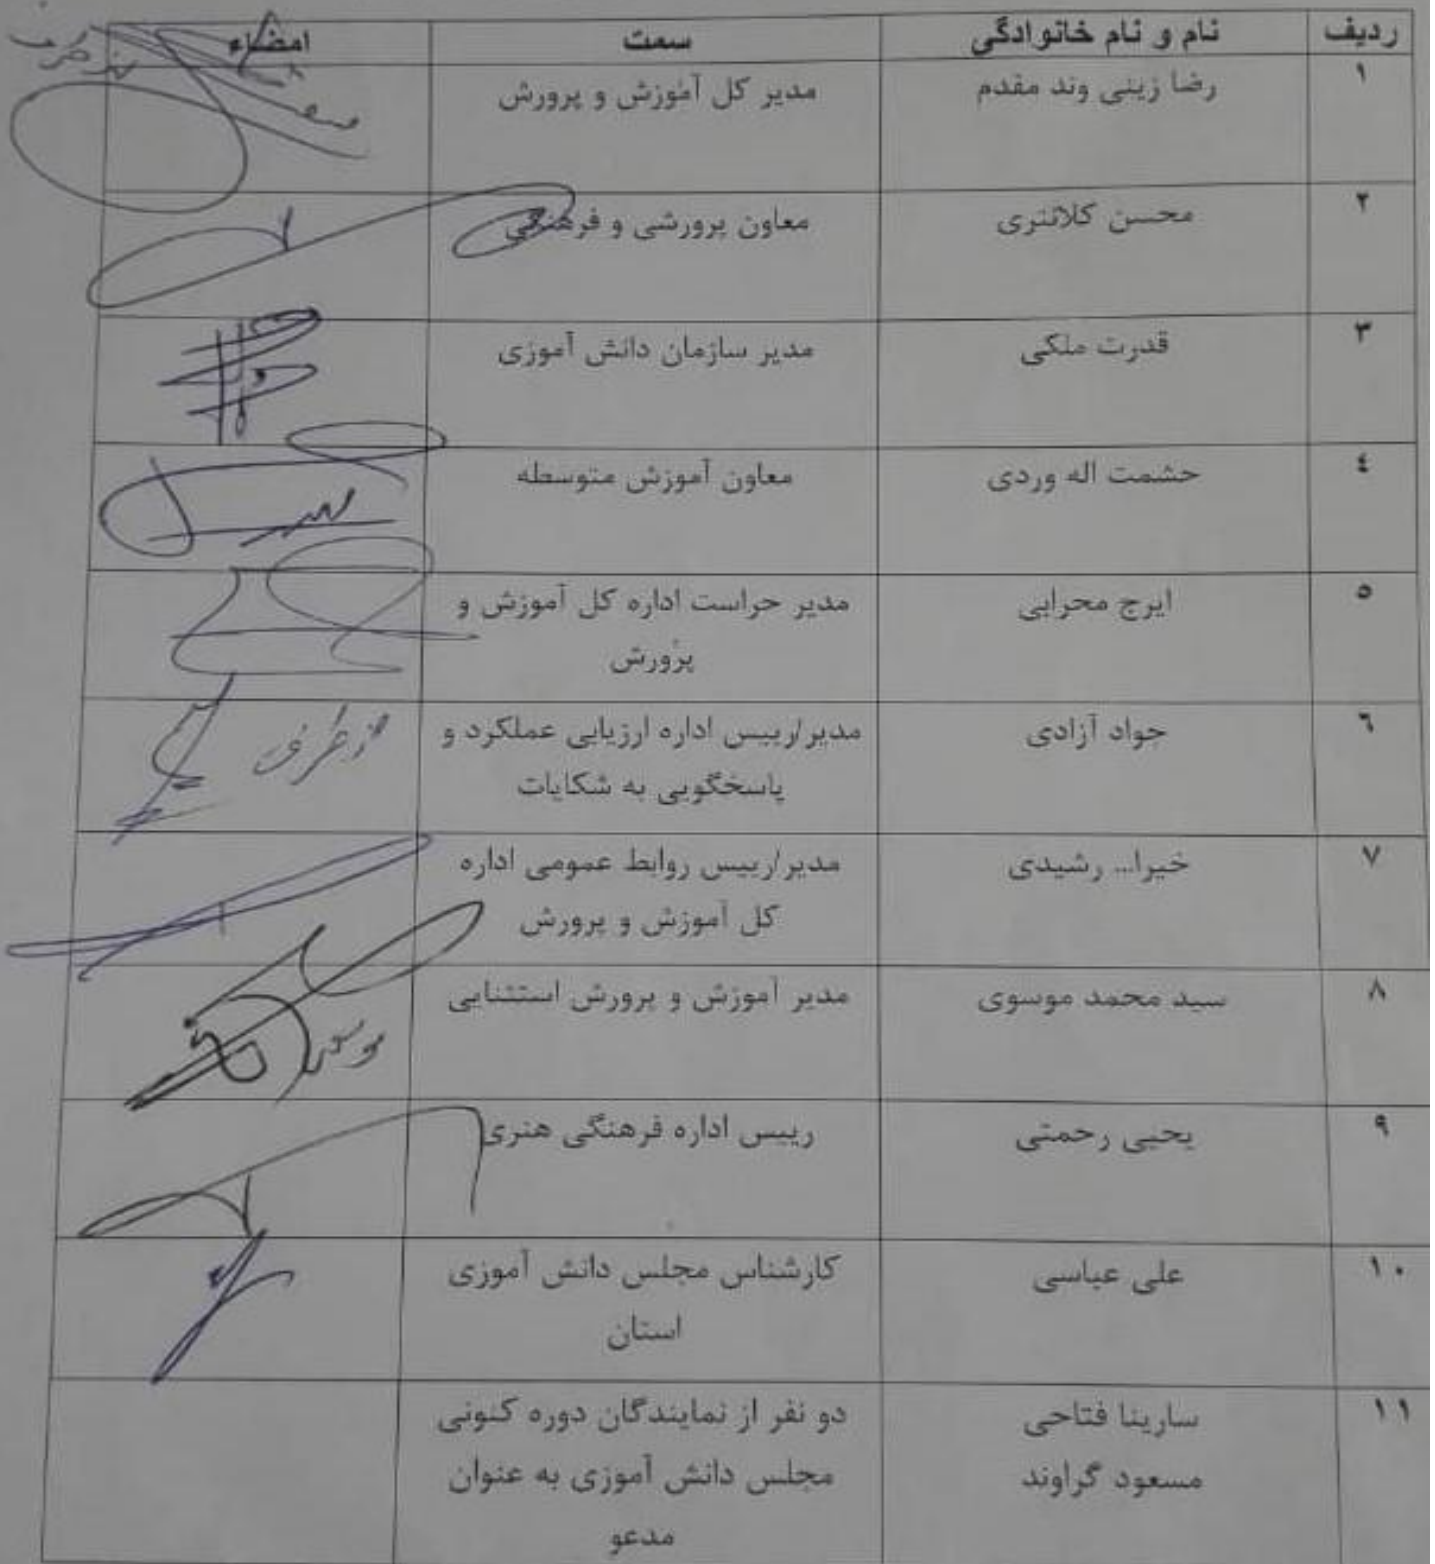 ردیف نام و نام خانوادگی سمت امضاء
۱ رضا زینی وند مقدم مدیر کل آموزش و پرورش
۲ محسن کلانتری معاون پرورشی و فرهنگی
۳ قدرت ملکی مدیر سازمان دانش آموزی
٤ حشمت اله وردی معاون آموزش متوسطه
۵ ایرج محرابی مدیر حراست اداره کل آموزش و
پرورش
۶ جواد آزادی مدیر/رییس اداره ارزیابی عملکرد و
از طرف
پاسخگویی به شکایات
۷ خیرا... رشیدی مدیر/رییس روابط عمومی اداره
کل آموزش و پرورش
۸ سید محمد موسوی مدیر آموزش و پرورش استثنایی
موسوی
۹ یحیی رحمتی رییس اداره فرهنگی هنری
۱۰ علی عباسی کارشناس مجلس دانش آموزی
استان
۱۱ سارینا فتاحی دو نفر از نمایندگان دوره کنونی
مسعود گراوند مجلس دانش آموزی به عنوان
مدعو